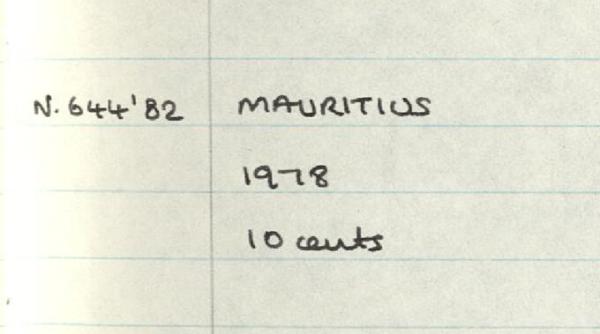 N. 644'82 MAURITIUS
1978
10 cents